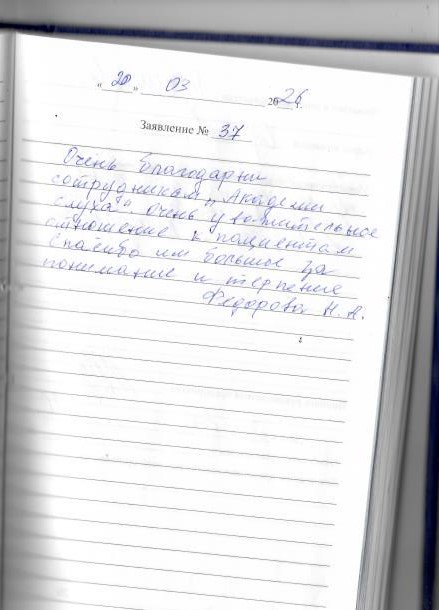 « 20 » 03 2026 г.
Заявление № 37
Очень благодарни
сотрудникам „Академии
слуха" очень уважительное
отношение к пациентам
Спасибо им большое за
понимание и терпение
Федорова Н. А.